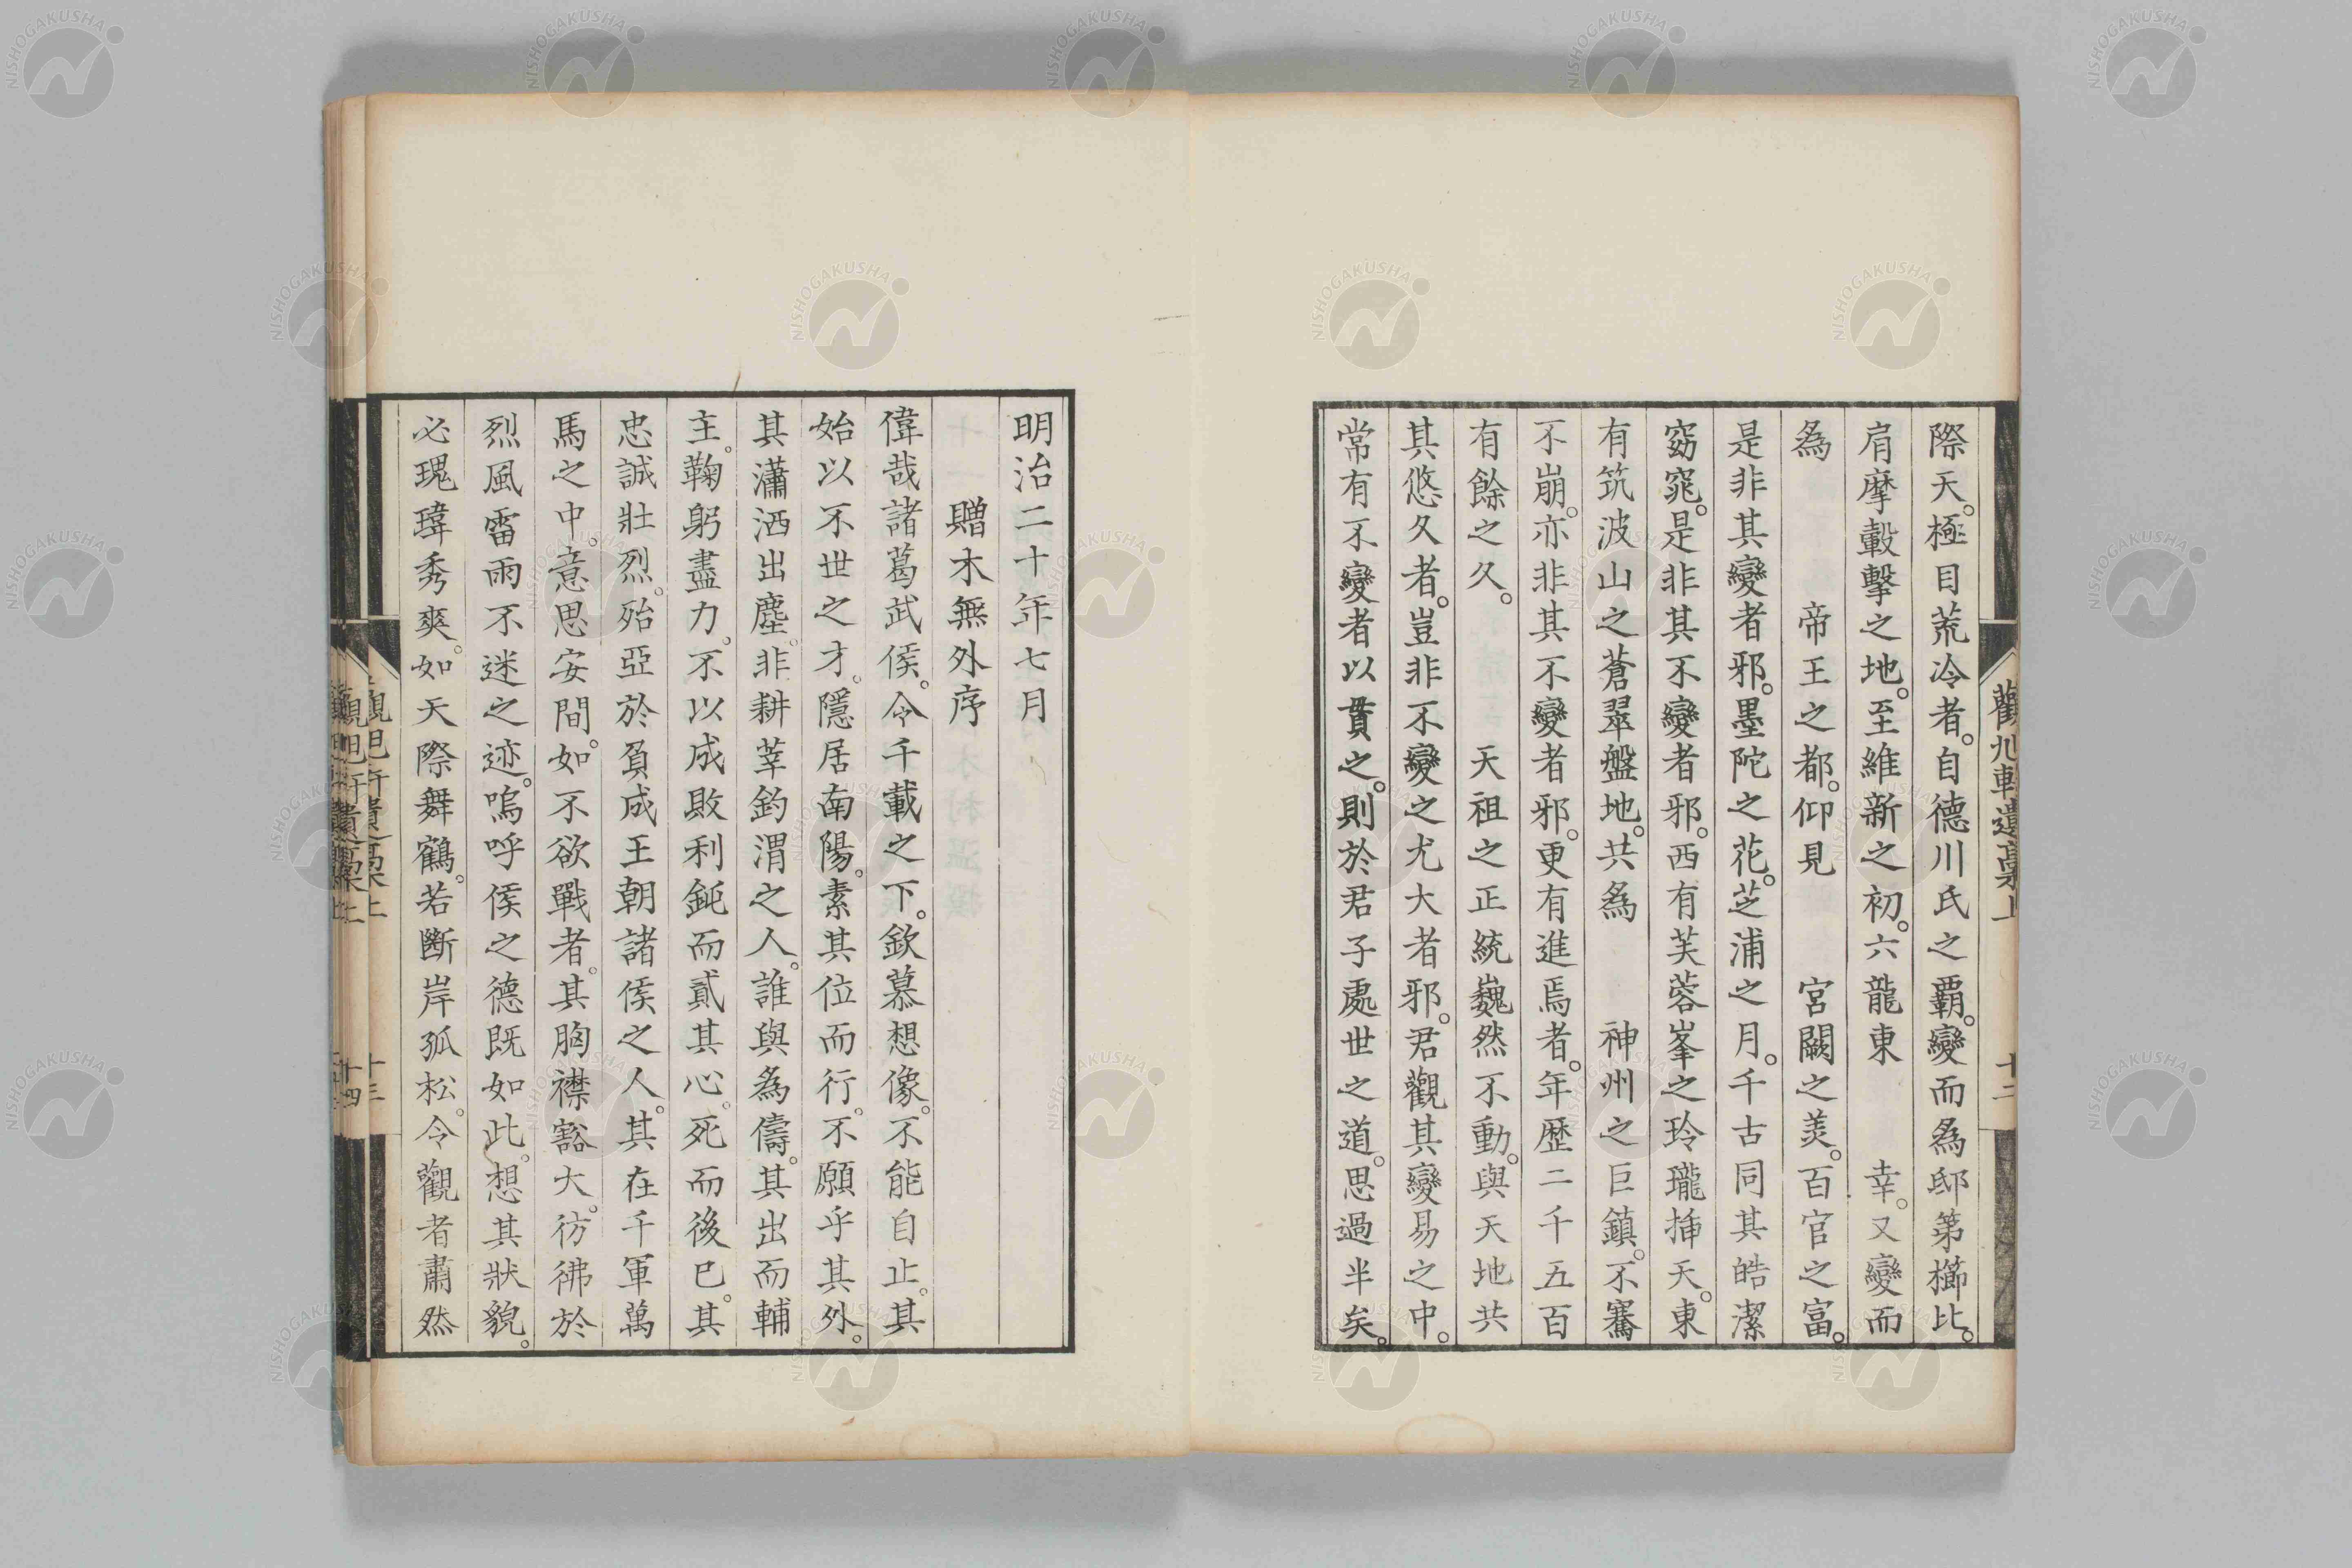 際天。極目荒冷者。自德川氏之覇。變而為邸第櫛比。
肩摩轂擊之地。至維新之初。六龍東　幸。又變而
為　　帝王之都。仰見　　宮闕之羨。百官之富。
是非其變者邪。墨陀之花。芝浦之月。千古同其皓潔
窈窕。是非其不變者邪。西有芙蓉峯之玲瓏挿天。東
有筑波山之蒼翠盤地。共為　　神州之巨鎮。不騫
不崩。亦非其不變者邪。更有進焉者。年歷二千五百
有餘之久。　　天祖之正統巍然不動。與天地共
其悠久者。豈非不變之尤大者邪。君觀其變易之中。
常有不變者以貫之。則於君子處世之道。思過半矣。
觀旭軒遺稾上　十二
明治二十年七月
贈木無外序
偉哉諸葛武侯。令千載之下。欽慕想像。不能自止。其
始以不世之才。隱居南陽。素其位而行。不願乎其外。
其瀟洒出塵。非耕莘釣渭之人。誰與為儔。其出而輔
主。鞠躬盡力。不以成敗利鈍而貳其心。死而後已。其
忠誠壯烈。殆亞於負成王朝諸侯之人。其在千軍萬
馬之中。意思安間。如不欲戰者。其胸襟豁大。彷彿於
烈風雷雨不迷之迹。嗚呼侯之德既如此。想其狀貌。
必瑰瑋秀爽。如天際舞鶴。若斷岸孤松。令觀者肅然
十三
十四
NISHOGAKUSHA